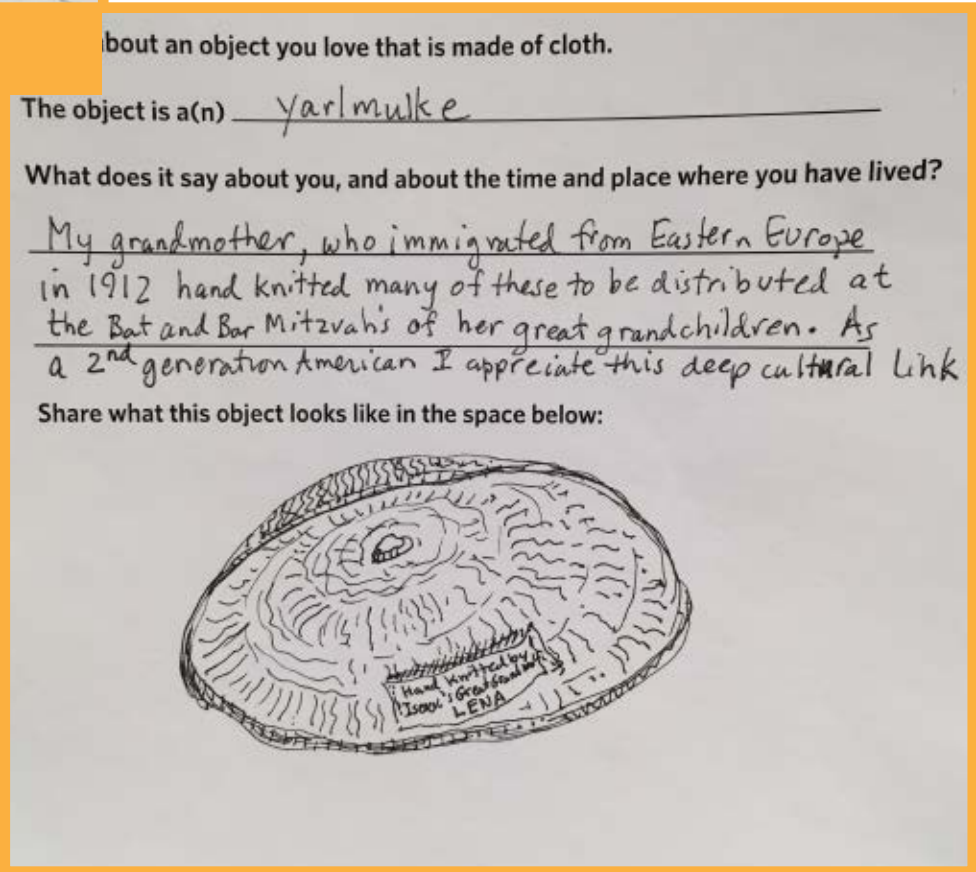 about an object you love that is made of cloth.
The object is a(n) yarlmulke
What does it say about you, and about the time and place where you have lived?
My grandmother, who immigrated from Eastern Europe
in 1912 hand knitted many of these to be distributed at
the Bat and Bar Mitzvah's of her great grandchildren. As
a 2nd generation American I appreciate this deep cultural Link
Share what this object looks like in the space below:
Hand Knitted by
Great
LENA